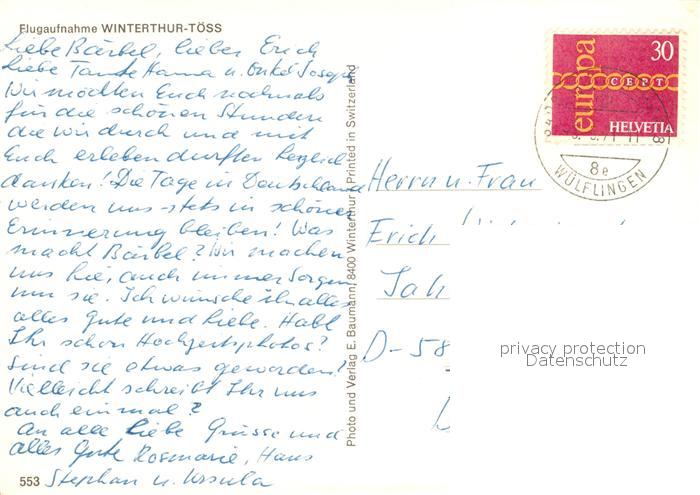 Flugaufnahme WINTERTHUR-TÖSS
Liebe Bärbel, lieber Erich
liebe Tante Hanna u. Onkel Joseph
Wir möchten Euch nochmals
für die schönen Stunden
die wir durch und mit
Euch erleben durften herzlich
danken! Die Tage in Deutschland
werden uns stets in schöner
Erinnerung bleiben! Was
macht Bärbel? Wir machen
uns hie, auch immer Sorgen
um sie. Ich wünsche ihr alles
alles Gute und Liebe. Habt
Ihr schon Hochzeitsphotos?
Sind sie etwas geworden?
Vielleicht schreibt Ihr uns
auch einmal?
An alle liebe Grüsse und
alles Gute Rosmarie, Hans
Stephan u. Ursula
553
Photo und Verlag E. Baumann, 8400 Winterthur Printed in Switzerland
30
europa
CEPT
HELVETIA
8e
WÜLFLINGEN
Herrn u. Frau
Erich
D-58
privacy protection
Datenschutz